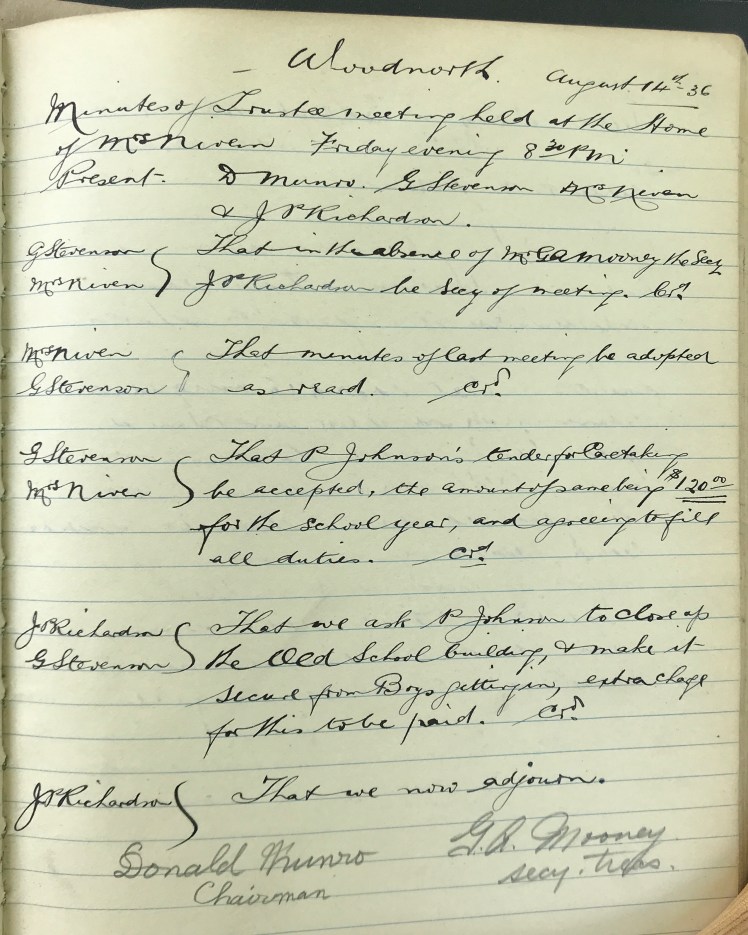 Woodnorth.
August. 14th - 36
Minutes of Trustee meeting held at the Home
of Mrs Niven Friday evening 8 30 P.M.
Present. D Munro. G Stevenson Mrs Niven
& J P Richardson.
G Stevenson That in the absence of Mr G A Mooney the Secy
Mrs Niven J P Richardson be Secy of meeting. Crd
Mrs Niven That minutes of last meeting be adopted
G Stevenson as reard. Crd
G Stevenson That P Johnson's tender for Caretaking
Mrs Niven be accepted, the amount of same being $120.00
for the school year, and agreeing to fill
all duties. Crd
J P Richardson That we ask P Johnson to close up
G Stevenson the Old School building, & make it
secure from Boys getting in, extra chage
for this to be paid. Crd
J P Richardson That we now adjourn.
Donald Munro G. A. Mooney
Chairman secy. treas.